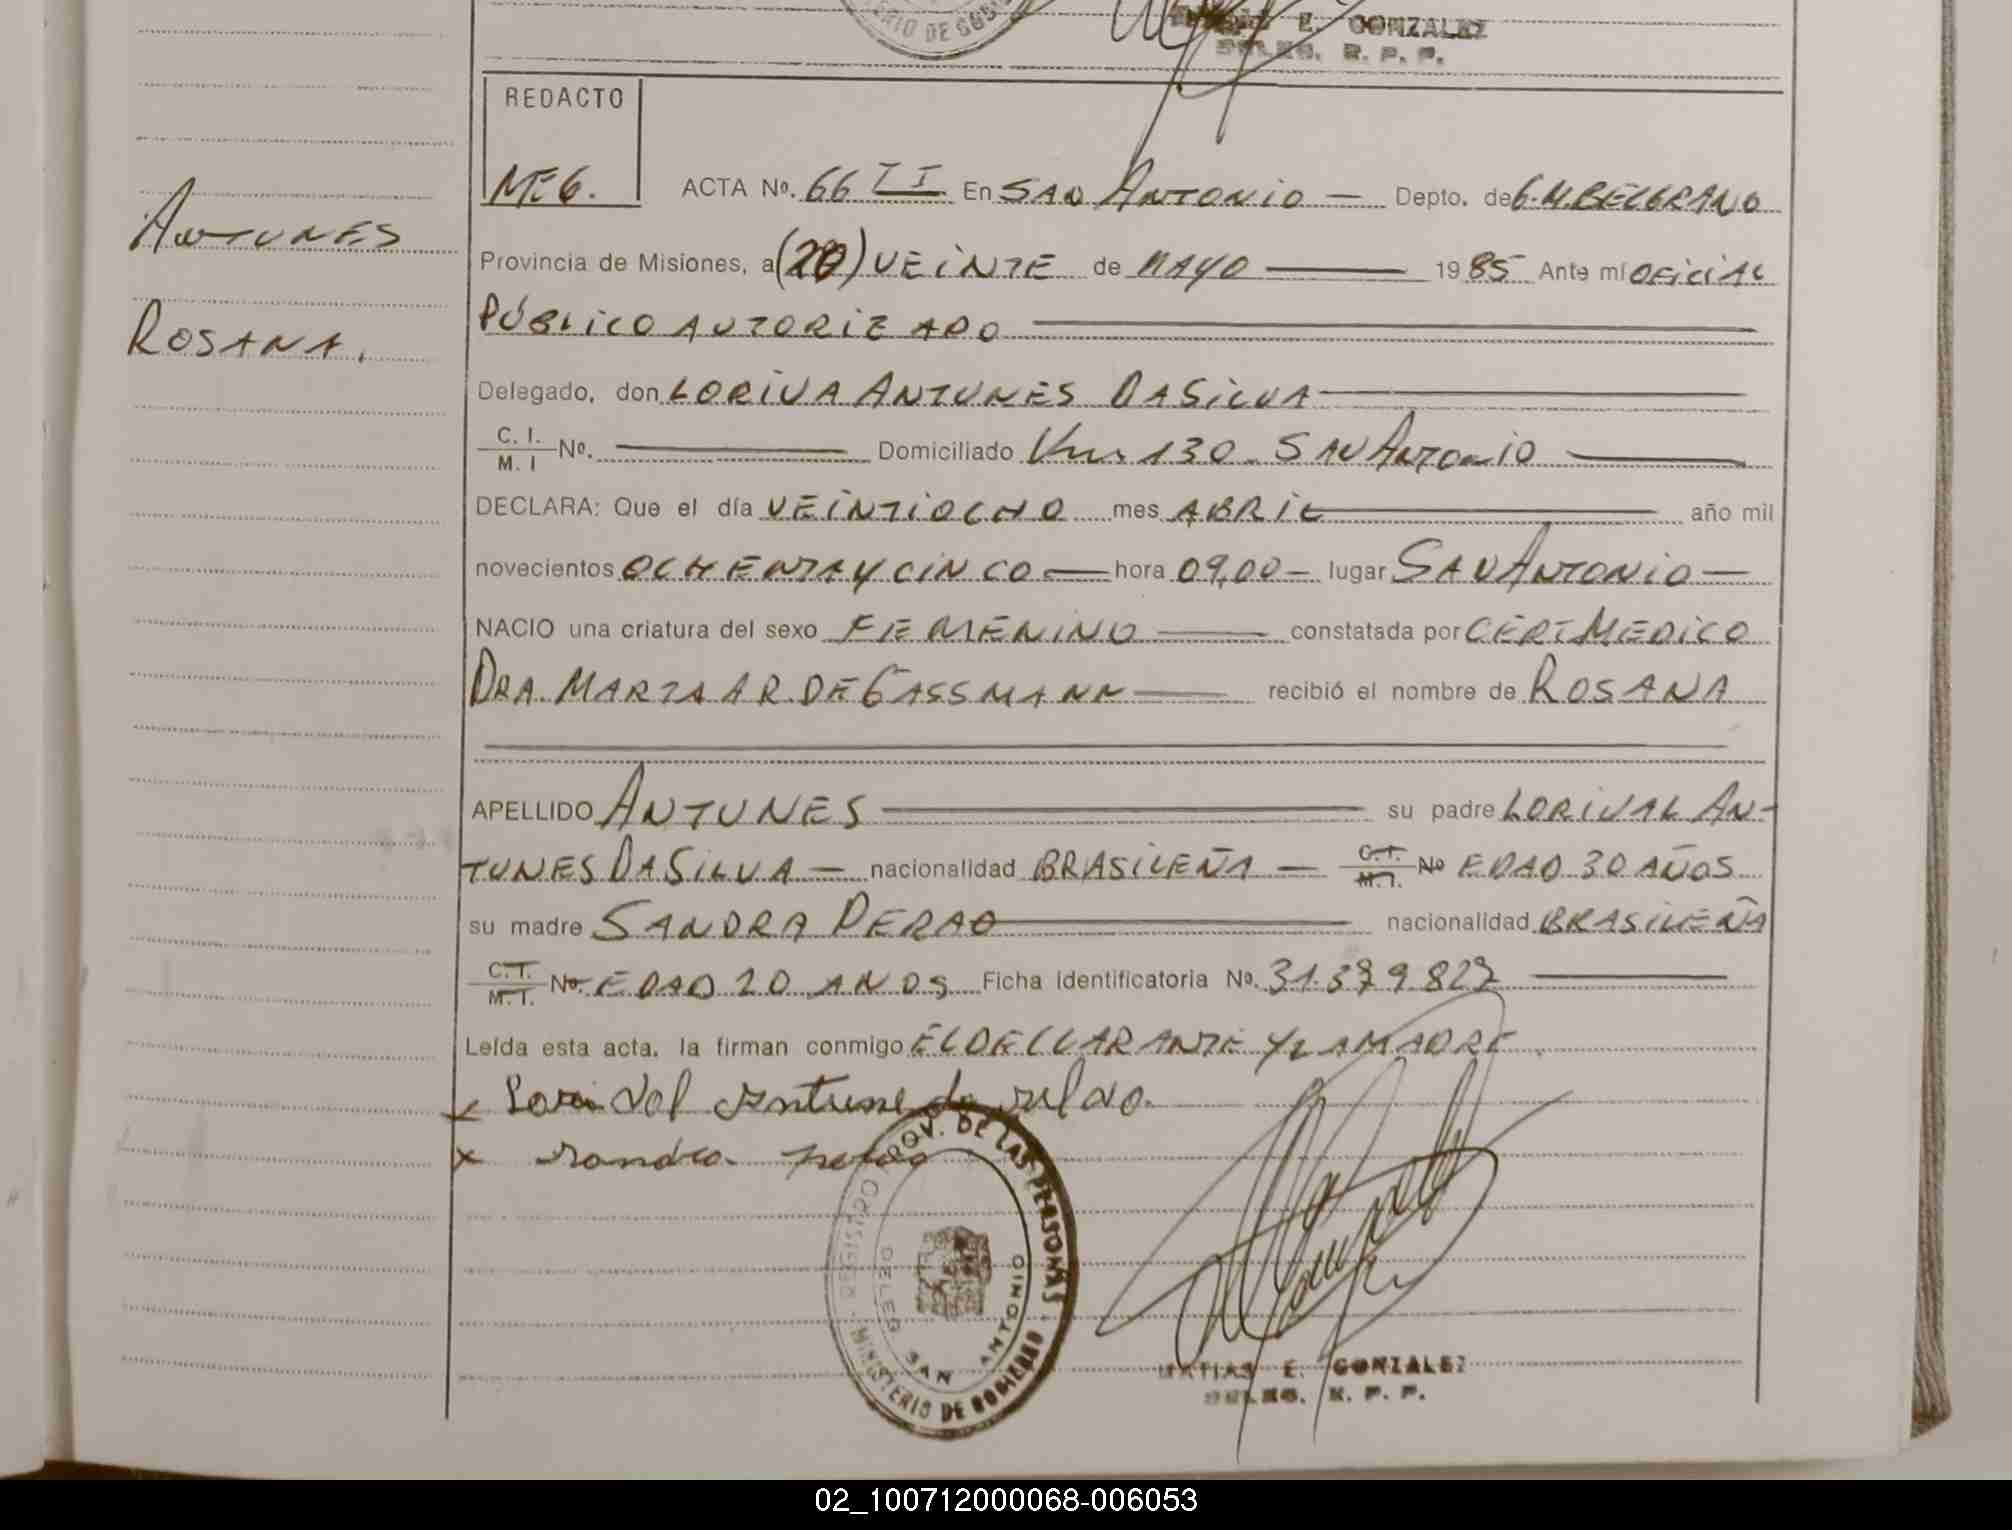 TORIO DE GOBI
E. GONZALEZ
DELEG. R. P. P.
REDACTO
M.E.G.
ACTA Nº. 66 TI En SAN ANTONIO — Depto. de G.M.BELGRANO
ANTUNES
ROSANA.
Provincia de Misiones, a (20) VEINTE de MAYO — 1985 Ante mí OFICIAL
PÚBLICO AUTORIZADO
Delegado, don LORIVA ANTUNES DA SILVA
C. I. / M. I Nº. — Domiciliado Km 130 - SAN ANTONIO
DECLARA: Que el día VEINTIOCHO mes ABRIL — año mil
novecientos OCHENTA Y CINCO — hora 09,00 — lugar SAN ANTONIO —
NACIO una criatura del sexo FEMENINO — constatada por CERT MEDICO
DRA. MARTA A R. DE GASSMANN — recibió el nombre de ROSANA
APELLIDO ANTUNES — su padre LORIVAL AN-
TUNES DA SILVA — nacionalidad BRASILEÑA — C.I. / M.I. Nº EDAD 30 AÑOS
su madre SANDRA PERAO — nacionalidad BRASILEÑA
C.I. / M.I. Nº. EDAD 20 ANOS Ficha Identificatoria Nº. 31.379.827
Leída esta acta, la firman conmigo EL DECLARANTE Y LA MADRE
x Lorival Antunes da silva
x sandra perao
REGISTRO PROV. DE LAS PERSONAS
DELEG. SAN ANTONIO
MINISTERIO DE GOBIERNO
MATIAS E. GONZALEZ
DELEG. R. P. P.
02_100712000068-006053